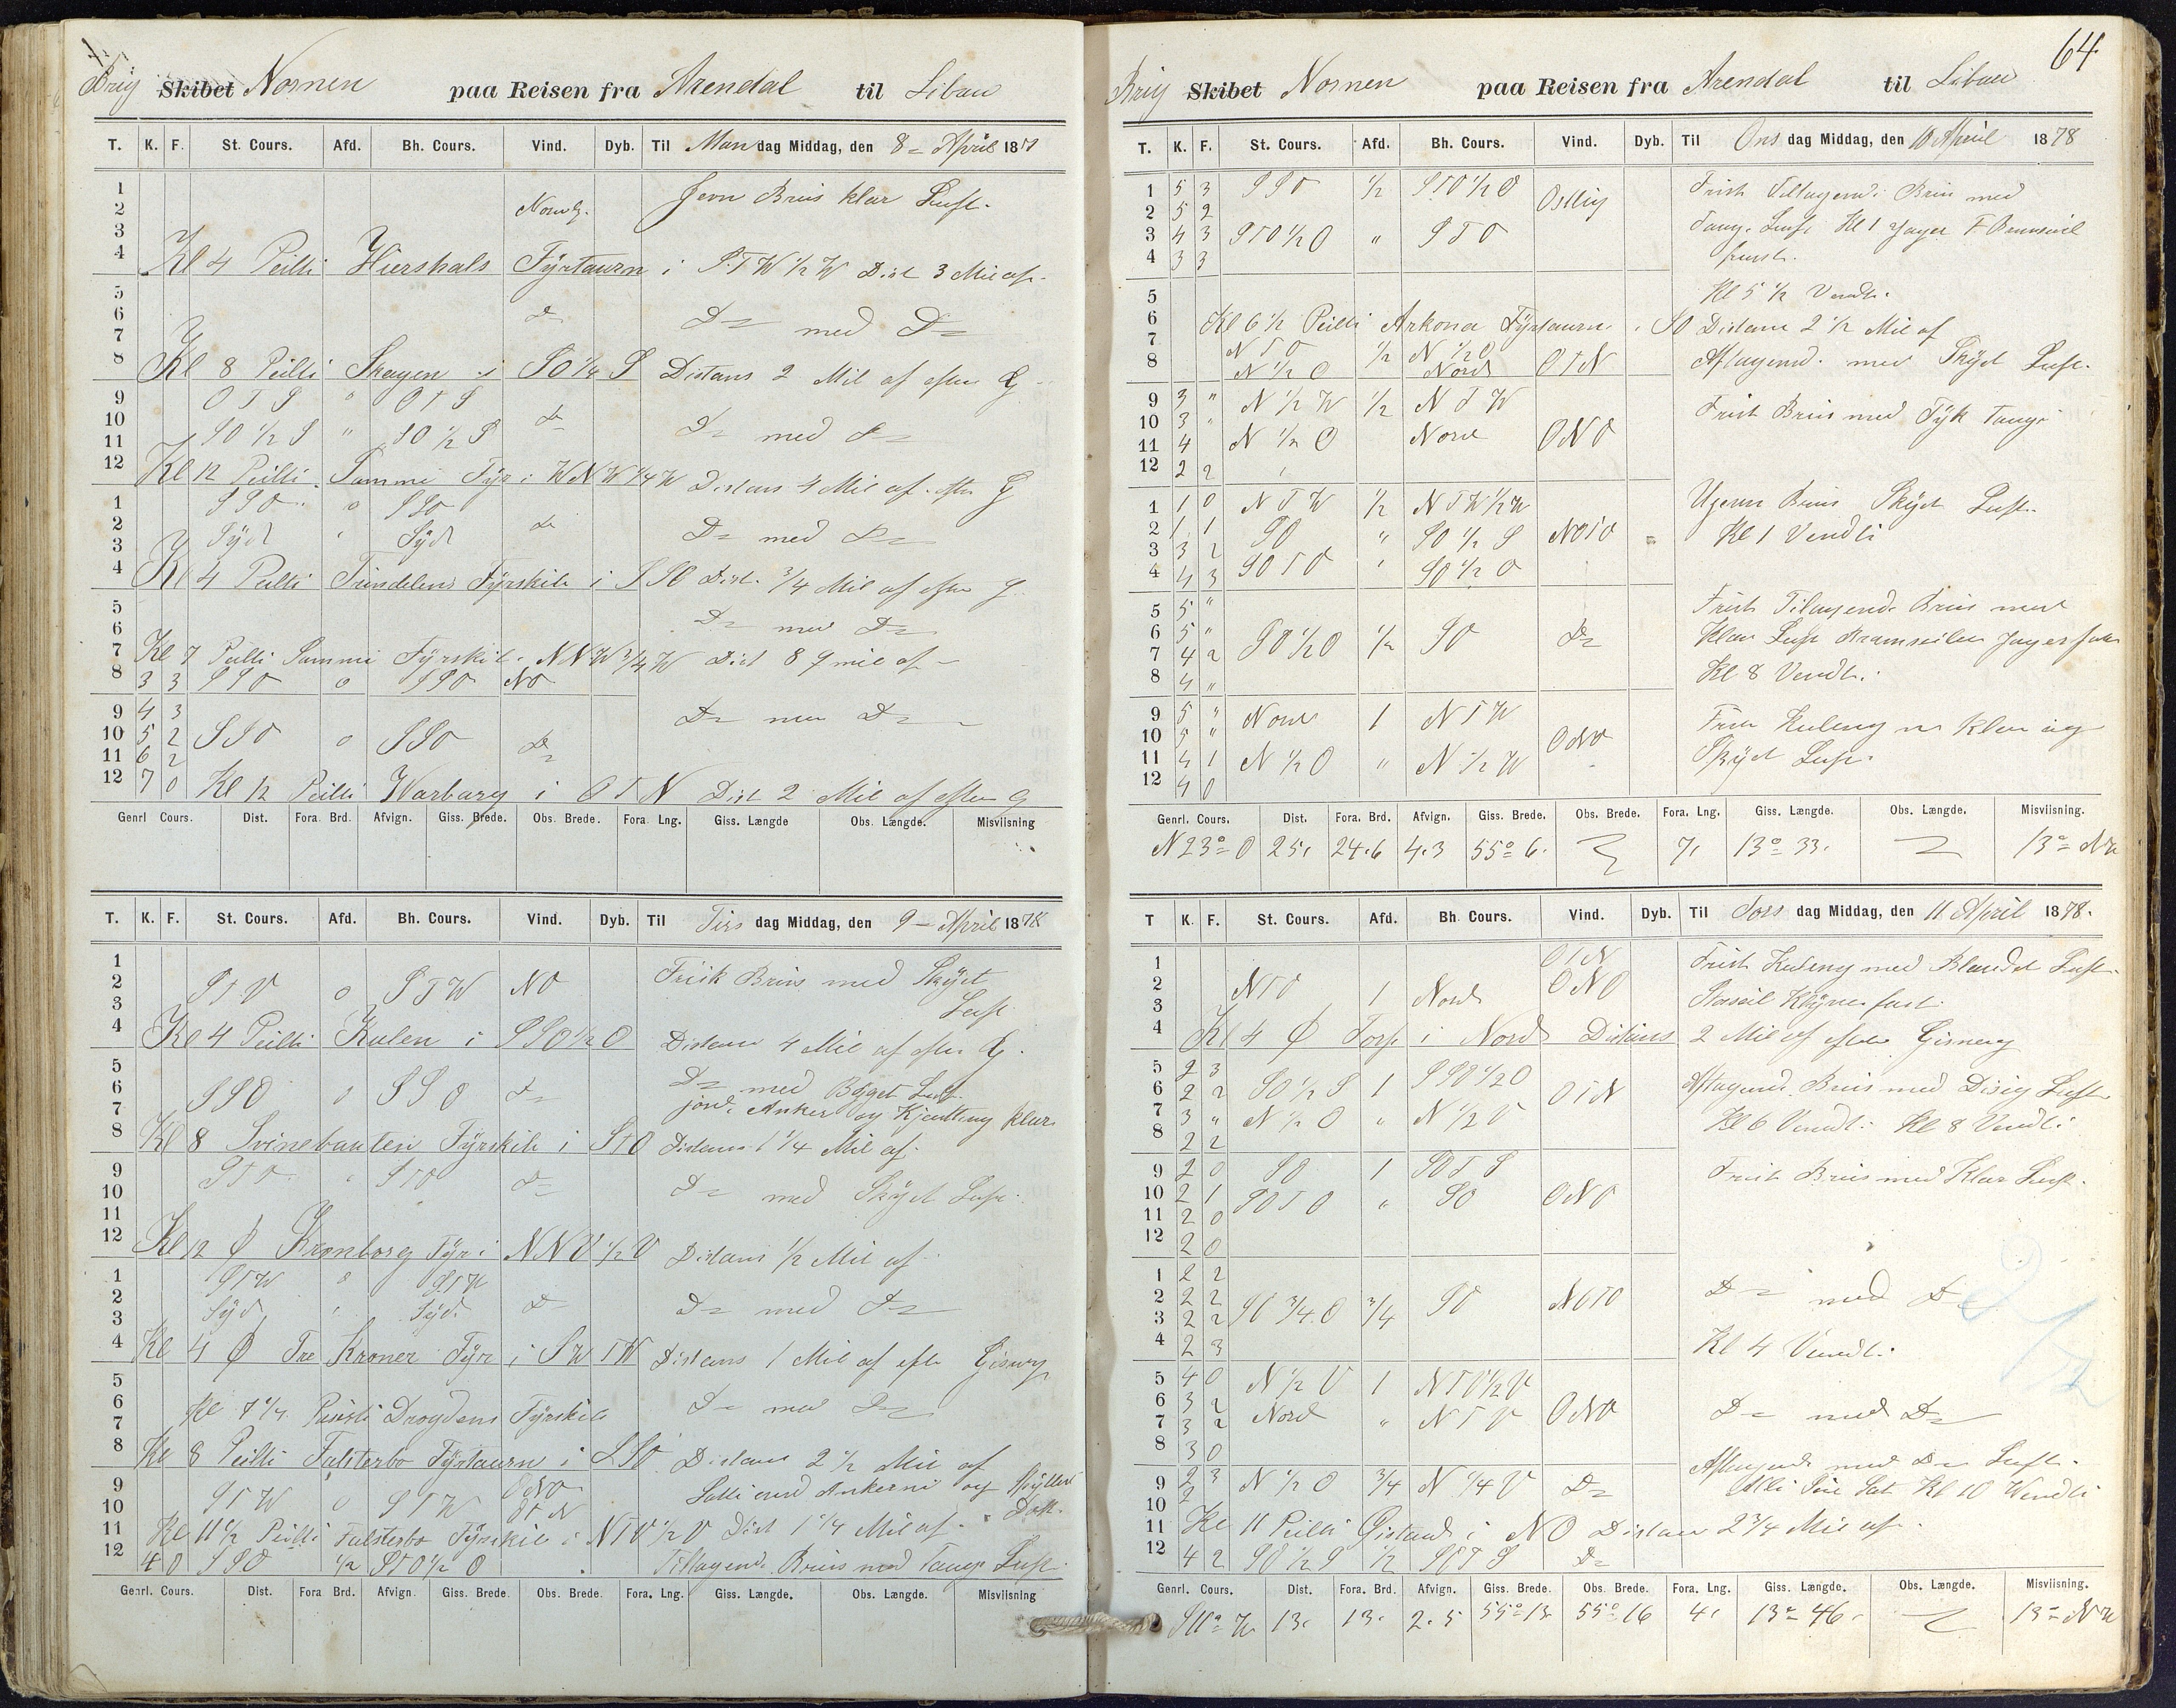 Brig Skibet Nornen paa Reisen fra Arendal til Libau
T. K. F. St. Cours. Afd. Bh. Cours. Vind. Dyb. Til Man dag Middag, den 8 April 18
1
2 Jevn Briis klar Luft.
3
4 Kl 4 Peilti Hirshals Fyrtaarn i STW 1/2 W Dist 3 Mil af
5
6 Do Do med Do
7
8 Kl 8 Peilti Skagen i SO 1/4 S Distans 2 Mil af efter G
9 OTS 0 OTS
10 SO 1/2 S " SO 1/2 S Do Do med Do
11
12 Kl 12 Peilti Fyr i WNW 1/4 W Distans 4 Mil af efter G
1 SSO 0 SSO
2 Syd " Syd Do Do med Do
3
4 Kl 4 Peilti Trindelens Fyrskib i SSO Dist. 3/4 Mil af efter G
5
6 Do med Do
7 Kl 7 Peilti Samme Fyrskib NNW 3/4 W Dist 8 mil af
8 3 3 SSO 0 SSO NO
9 4 3 Do med Do
10 5 2 SSO 0 SSO Do
11 6 2
12 7 0 Kl 12 Peilti Warbarg i OTN Dist 2 Mil af efter G
Genrl Cours. Dist. Fora. Brd. Afvign. Giss. Brede. Obs. Brede. Fora. Lng. Giss. Længde Obs. Længde. Misviisning
T. K. F. St. Cours. Afd. Bh. Cours. Vind. Dyb. Til Tirs dag Middag, den 9 April 1878
1
2 STO 0 STW NO Frisk Briis med Skyet
3 Luft
4 Kl 4 Peilti Kulen i SSO 1/2 O Distans 4 Mil af efter G.
5
6 SSO 0 SSO Do Do med Bøget Luft
7 Anker og Kjætting klar
8 Kl 8 Svinebaaden Fyrskib i STO Distans 1 1/4 Mil af
9 STO " STO Do
10 Do med Skyet Luft
11
12 Kl 12 Φ Kronborg Fyr i NNO 1/2 O Distans 1/2 Mil af
1 STW 0 STW
2 Syd " Syd Do Do med Do
3
4 Kl 4 Φ Tre Kroner Fyr i SWTW Distans 1 Mil af efter Gisning
5
6 Kl 7 1/4 Drogdens Fyrskib Do med Do
7
8 Kl 8 Peilti Falsterbo Fyrtaarn i SSO Distans 2 1/2 Mil af
9 STW 0 STW ONO Ankerne og
10 OTN Dæk.
11 Kl 11 1/2 Peilti Falsterbo Fyrskib i NTO 1/2 O Dist 1 1/4 Mil af
12 4 0 SSO 1/2 STO 1/2 O Tiltagend. Briis med Taage Luft
Genrl. Cours. Dist. Fora Brd. Afvign. Giss. Brede. Obs. Brede. Fora. Lng. Giss. Længde. Obs. Længde. Misviisning
64
Brig Skibet Nornen paa Reisen fra Arendal til Libau
T. K. F. St. Cours. Afd. Bh. Cours. Vind. Dyb. Til Ons dag Middag, den 10 April 1878
1 5 3 SSO 1/2 STO 1/2 O Ostlig Frisk Tiltagend. Briis med
2 5 2
3 4 3 STO 1/2 O " STO Taag. Luft Kl 1 Jager
4 3 3 fast.
5 Kl 5 1/2 Vendte.
6 Kl 6 1/2 Peilti Arkona Fyrtaarn i SO Distans 2 1/2 Mil af
7 NTO 1/2 N 1/2 O
8 N 1/2 O Nord OTN Aftagend. med Skyet Luft.
9 3 " N 1/2 W 1/2 NTW Frisk Briis med Tyk Taage
10 3 "
11 4 N 1/2 O Nord ONO
12 2 2
1 1 0 NTW 1/2 NTW 1/2 W Ujevn Briis Skyet Luft.
2 1 1 SO " SO 1/2 S NOTO Kl 1 Vendti
3 3 2
4 4 3 SOTO " SO 1/2 O
5 5 " Frisk Tiltagende Briis med
6 5 " SO 1/2 O 1/2 SO Do Klar Luft
7 4 2
8 4 " Kl 8 Vendti.
9 5 " Nord 1 NTW Frisk Kuling m Klar og
10 5 " ONO
11 4 1 N 1/2 O " N 1/2 W Skyet Luft.
12 4 0
Genrl. Cours. Dist. Fora. Brd. Afvign. Giss. Brede. Obs. Brede. Fora. Lng. Giss. Længde. Obs. Længde. Misviisning.
N 23° O 25, 24.6 4.3 55° 6. 7, 13° 33. 13° NW
T K. F. St. Cours. Afd. Bh Cours. Vind. Dyb. Til Tors dag Middag, den 11 April 1878.
1 OTN Frisk Kuling med Blandet Luft
2 NTO 1 Nord ONO
3 Storseil Klyver fast
4 Kl 4 Φ Torp i Nord Distans 2 Mil af efter Gisning
5 2 3 SO 1/2 S 1 SSO 1/2 O Aftagend. Briis med Disig Luft
6 2 2 OTN
7 3 " N 1/2 O " N 1/2 O Kl 6 Vendti Kl 8 Vendti
8 2 2
9 2 0 SO 1 SOTS Frisk Briis med Klar Luft.
10 2 1 SOTO " SO ONO
11 2 0
12 2 0
1 2 2
2 2 2 SO 3/4 O 3/4 SO NOTO Do med Do
3 2 2
4 2 3 Kl 4 Vendti.
5 4 0 N 1/2 O 1 NTO 1/2 O
6 3 2 Nord " NTO ONO Do med Do
7 3 2
8 3 0
9 2 3 N 1/2 O 3/4 N 1/4 O Do Aftagend. med Do Luft.
10 2 Kl 10 Wendti
11 Kl 11 Peilti Øeland i NO Distans 2 3/4 Mil af
12 4 2 SO 1/2 S 1/2 SOTS Do
Genrl. Cours. Dist. Fora. Brd. Afvign. Giss. Brede. Obs. Brede. Fora. Lng. Giss. Længde. Obs. Længde. Misviisning.
S 11° W 13. 13. 2.5 55° 13 55° 16 4, 13° 46. 13° NW